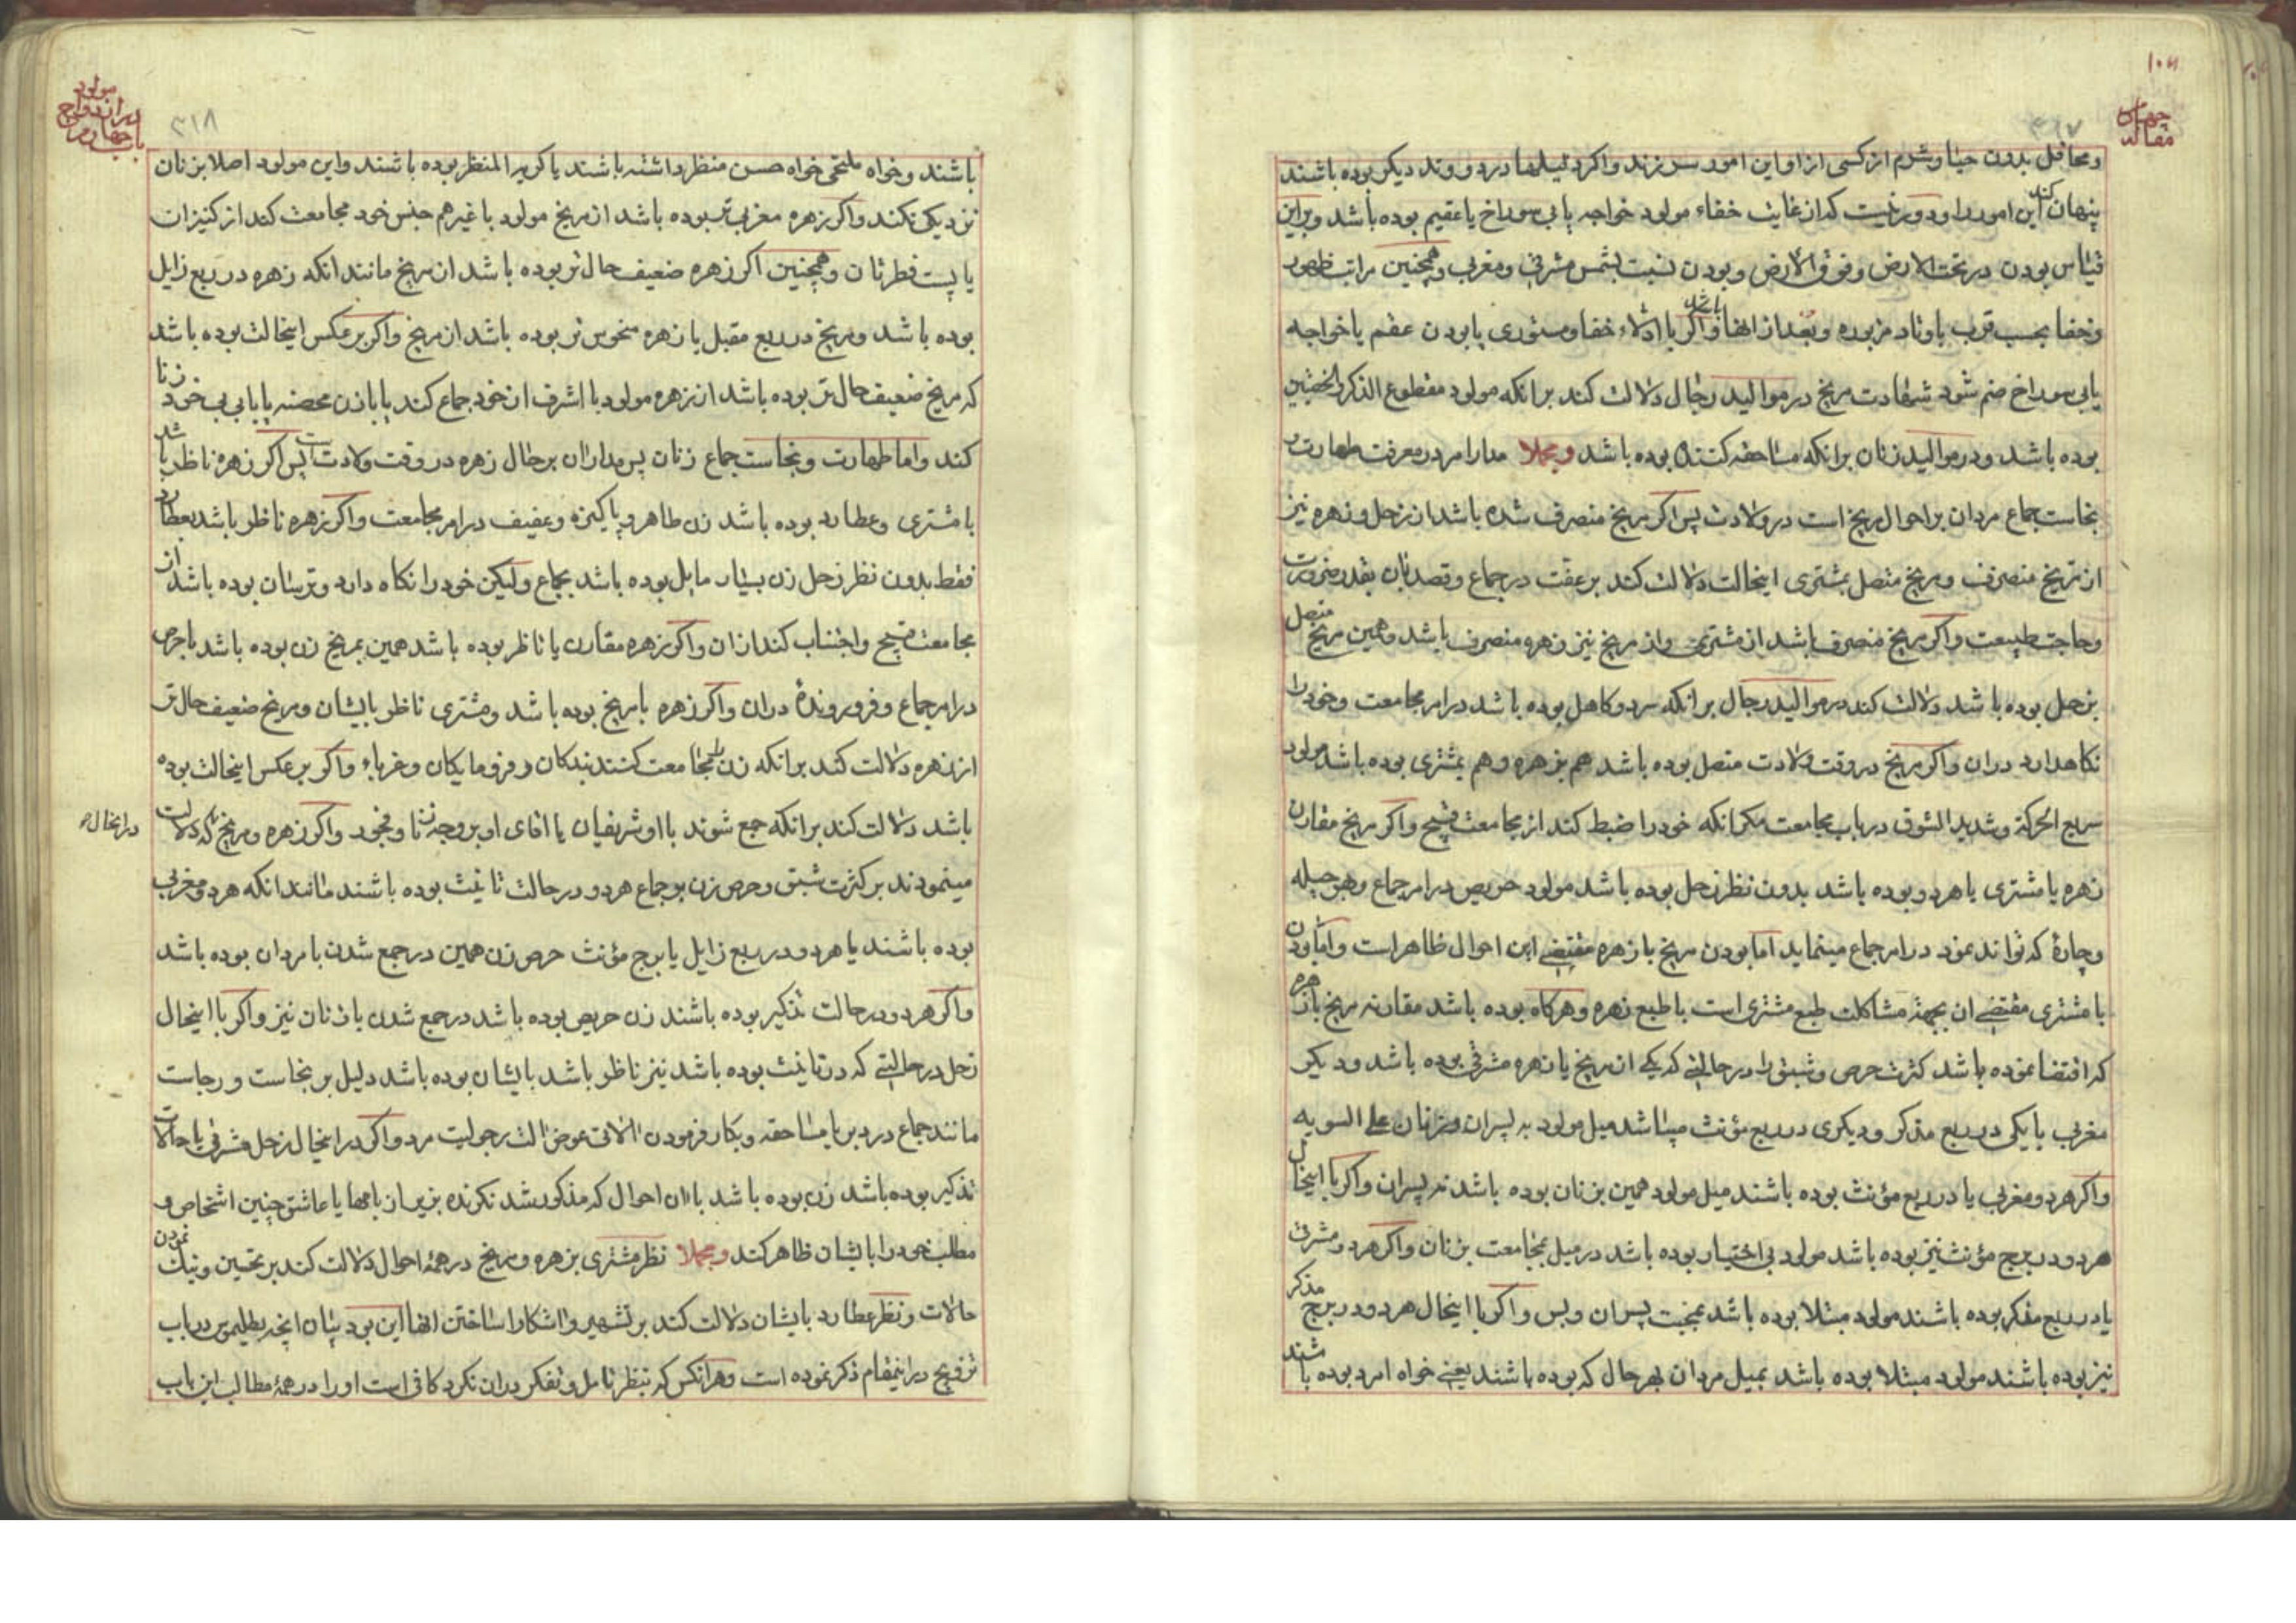 ۳۱۷
مقاله
چهارم
و محافل بدون حیا و شرم از کسی از او این امور سر زند واکر دلیلها در دو وتد دیکر بوده باشند
پنهان کند این امور را و دور نیست که از غایت خفاء مولود خواجه یا بی سوراخ یا عقیم بوده باشد و براین
قیاس بودن در تحت الارض و فوق الارض و بودن نسبت بشمس مشرقی و مغربی و همچنین مراتب ظهور
و خفا بحسب قرب باوتاد مزبوره و بعد از انها باشد واکر با ادلاء خفا و مستوری یا بودن عقیم یا خواجه
یا بی سوراخ ضم شود شهادت مریخ در موالید رجال دلالت کند برانکه مولود مقطوع الذکر والخصیتین
بوده باشد و در موالید زنان برانکه مساحقه کننده بوده باشد و مجملا مدار امر در معرفت طهارت و
نجاست جماع مردان بر احوال مریخ است در ولادت پس اکر مریخ منصرف شده باشد از زحل و زهره نیز
از مریخ منصرف و مریخ متصل بمشتری اینحالت دلالت کند بر عفت در جماع و قصد بآن بقدر ضرورت
وحاجت طبیعت واکر مریخ منصرف باشد از مشتری و از مریخ نیز زهره منصرف باشد و همین مریخ متصل
بزحل بوده باشد دلالت کند در موالید رجال برانکه سرد و کاهل بوده باشد در امر مجامعت و خود را
نکاهدارد دران واکر مریخ در وقت ولادت متصل بوده باشد هم بزهره و هم بمشتری بوده باشد مولود
سریع الحرکة و شدید الشوق در باب مجامعت مکر انکه خود را ضبط کند از مجامعت قبیح واکر مریخ مقارن
زهره یا مشتری یا هر دو بوده باشد بدون نظر زحل بوده باشد مولود حریص در امر جماع و هر حیله
و چارهٔ که تواند نمود در امر جماع مینماید اما بودن مریخ با زهره مقتضی این احوال ظاهر است و اما بودن
با مشتری مقتضی ان بجهة مشاکلت طبع مشتری است با طبع زهره و هرکاه بوده باشد مقارنه مریخ با زهره
که اقتضا نموده باشد کثرت حرص و شبق را در حالتی که یکی از مریخ یا زهره مشرقی بوده باشد و دیکر
مغربی یا یکی در ربع مذکر و دیکری در ربع مؤنث میباشد میل مولود به پسران و زنان علی السویه
واکر هر دو مغربی یا در ربع مؤنث بوده باشند میل مولود همین بزنان بوده باشد نه پسران واکر با اینحال
هر دو در برج مؤنث نیز بوده باشد مولود بی اختیار بوده باشد در میل بمجامعت بزنان واکر هر دو مشرقی
یا در ربع مذکر بوده باشند مولود مبتلا بوده باشد بمحبت پسران و بس واکر با اینحال هر دو در برج مذکر
نیز بوده باشند مولود مبتلا بوده باشد بمیل مردان بهر حال که بوده باشند یعنی خواه امرد بوده باشند
۳۱۸
باب چهارم
در ازدواج
مولود
باشند و خواه ملتحی خواه حسن منظر داشته باشند یا کریه المنظر بوده باشند واین مولود اصلا بزنان
نزدیکی نکند واکر زهره مغربی تر بوده باشد از مریخ مولود با غیر هم جنس خود مجامعت کند از کنیزان
یا پست فطرتان و همچنین اکر زهره ضعیف حال تر بوده باشد از مریخ مانند انکه زهره در ربع زایل
بوده باشد و مریخ در ربع مقبل یا زهره منحوس تر بوده باشد از مریخ واکر بر عکس اینحالت بوده باشد
که مریخ ضعیف حال تر بوده باشد از زهره مولود با اشرف از خود جماع کند یا با زن محصنه یا با بی بی خود زنا
کند و اما طهارت و نجاست جماع زنان پس مدار ان بر حال زهره در وقت ولادت است پس اکر زهره ناظر باشد
با مشتری و عطارد بوده باشد زن طاهر و پاکیزه و عفیف در امر مجامعت واکر زهره ناظر باشد بعطارد
فقط بدون نظر زحل زن بسیار مایل بوده باشد بجماع ولیکن خود را نکاه دارد و ترسان بوده باشد از
مجامعت قبیح و اجتناب کند از ان واکر زهره مقارن یا ناظر بوده باشد همین بمریخ زن بوده باشد با حرص
در امر جماع و فرو روندهٔ دران واکر زهره با مریخ بوده باشد و مشتری ناظر بایشان و مریخ ضعیف حال تر
از زهره دلالت کند برانکه زن را مجامعت کنند بندکان و فرومایکان و غرباء واکر بر عکس اینحالت بوده
باشد دلالت کند برانکه جمع شوند با او شریفان یا اقای او بر وجه زنا و فجور واکر زهره و مریخ که دلالت
در اینحال
مینمودند بر کثرت شبق و حرص زن بر جماع هر دو در حالت تانیث بوده باشند مانند انکه هر دو مغربی
بوده باشند یا هر دو در ربع زایل یا برج مؤنث حرص زن همین در جمع شدن با مردان بوده باشد
واکر هر دو در حالت تذکیر بوده باشند زن حریص بوده باشد در جمع شدن با زنان نیز واکر با اینحال
زحل در حالتی که در تانیث بوده باشد نیز ناظر باشد بایشان بوده باشد دلیل بر نجاست و رجاست
مانند جماع در دبر یا مساحقه و بکار فرمودن الاتی عوض الت رجولیت مرد واکر در اینحال زحل مشرقی یا حالات
تذکیر بوده باشد زن بوده باشد با ان احوال که مذکور شد یا عاشق چنین اشخاص و
مطلب خود را بایشان ظاهر کند و مجملا نظر مشتری بزهره و مریخ در همهٔ احوال دلالت کند بر تحسین و نیک نمودن
حالات و نظر عطارد بایشان دلالت کند بر تشهیر و اشکارا ساختن انها این بود بیان انچه بطلیموس در باب
تزویج در اینمقام ذکر نموده است و هرانکس که بنظر تامل و تفکر دران نکرد کافی است او را در همهٔ مطالب این باب